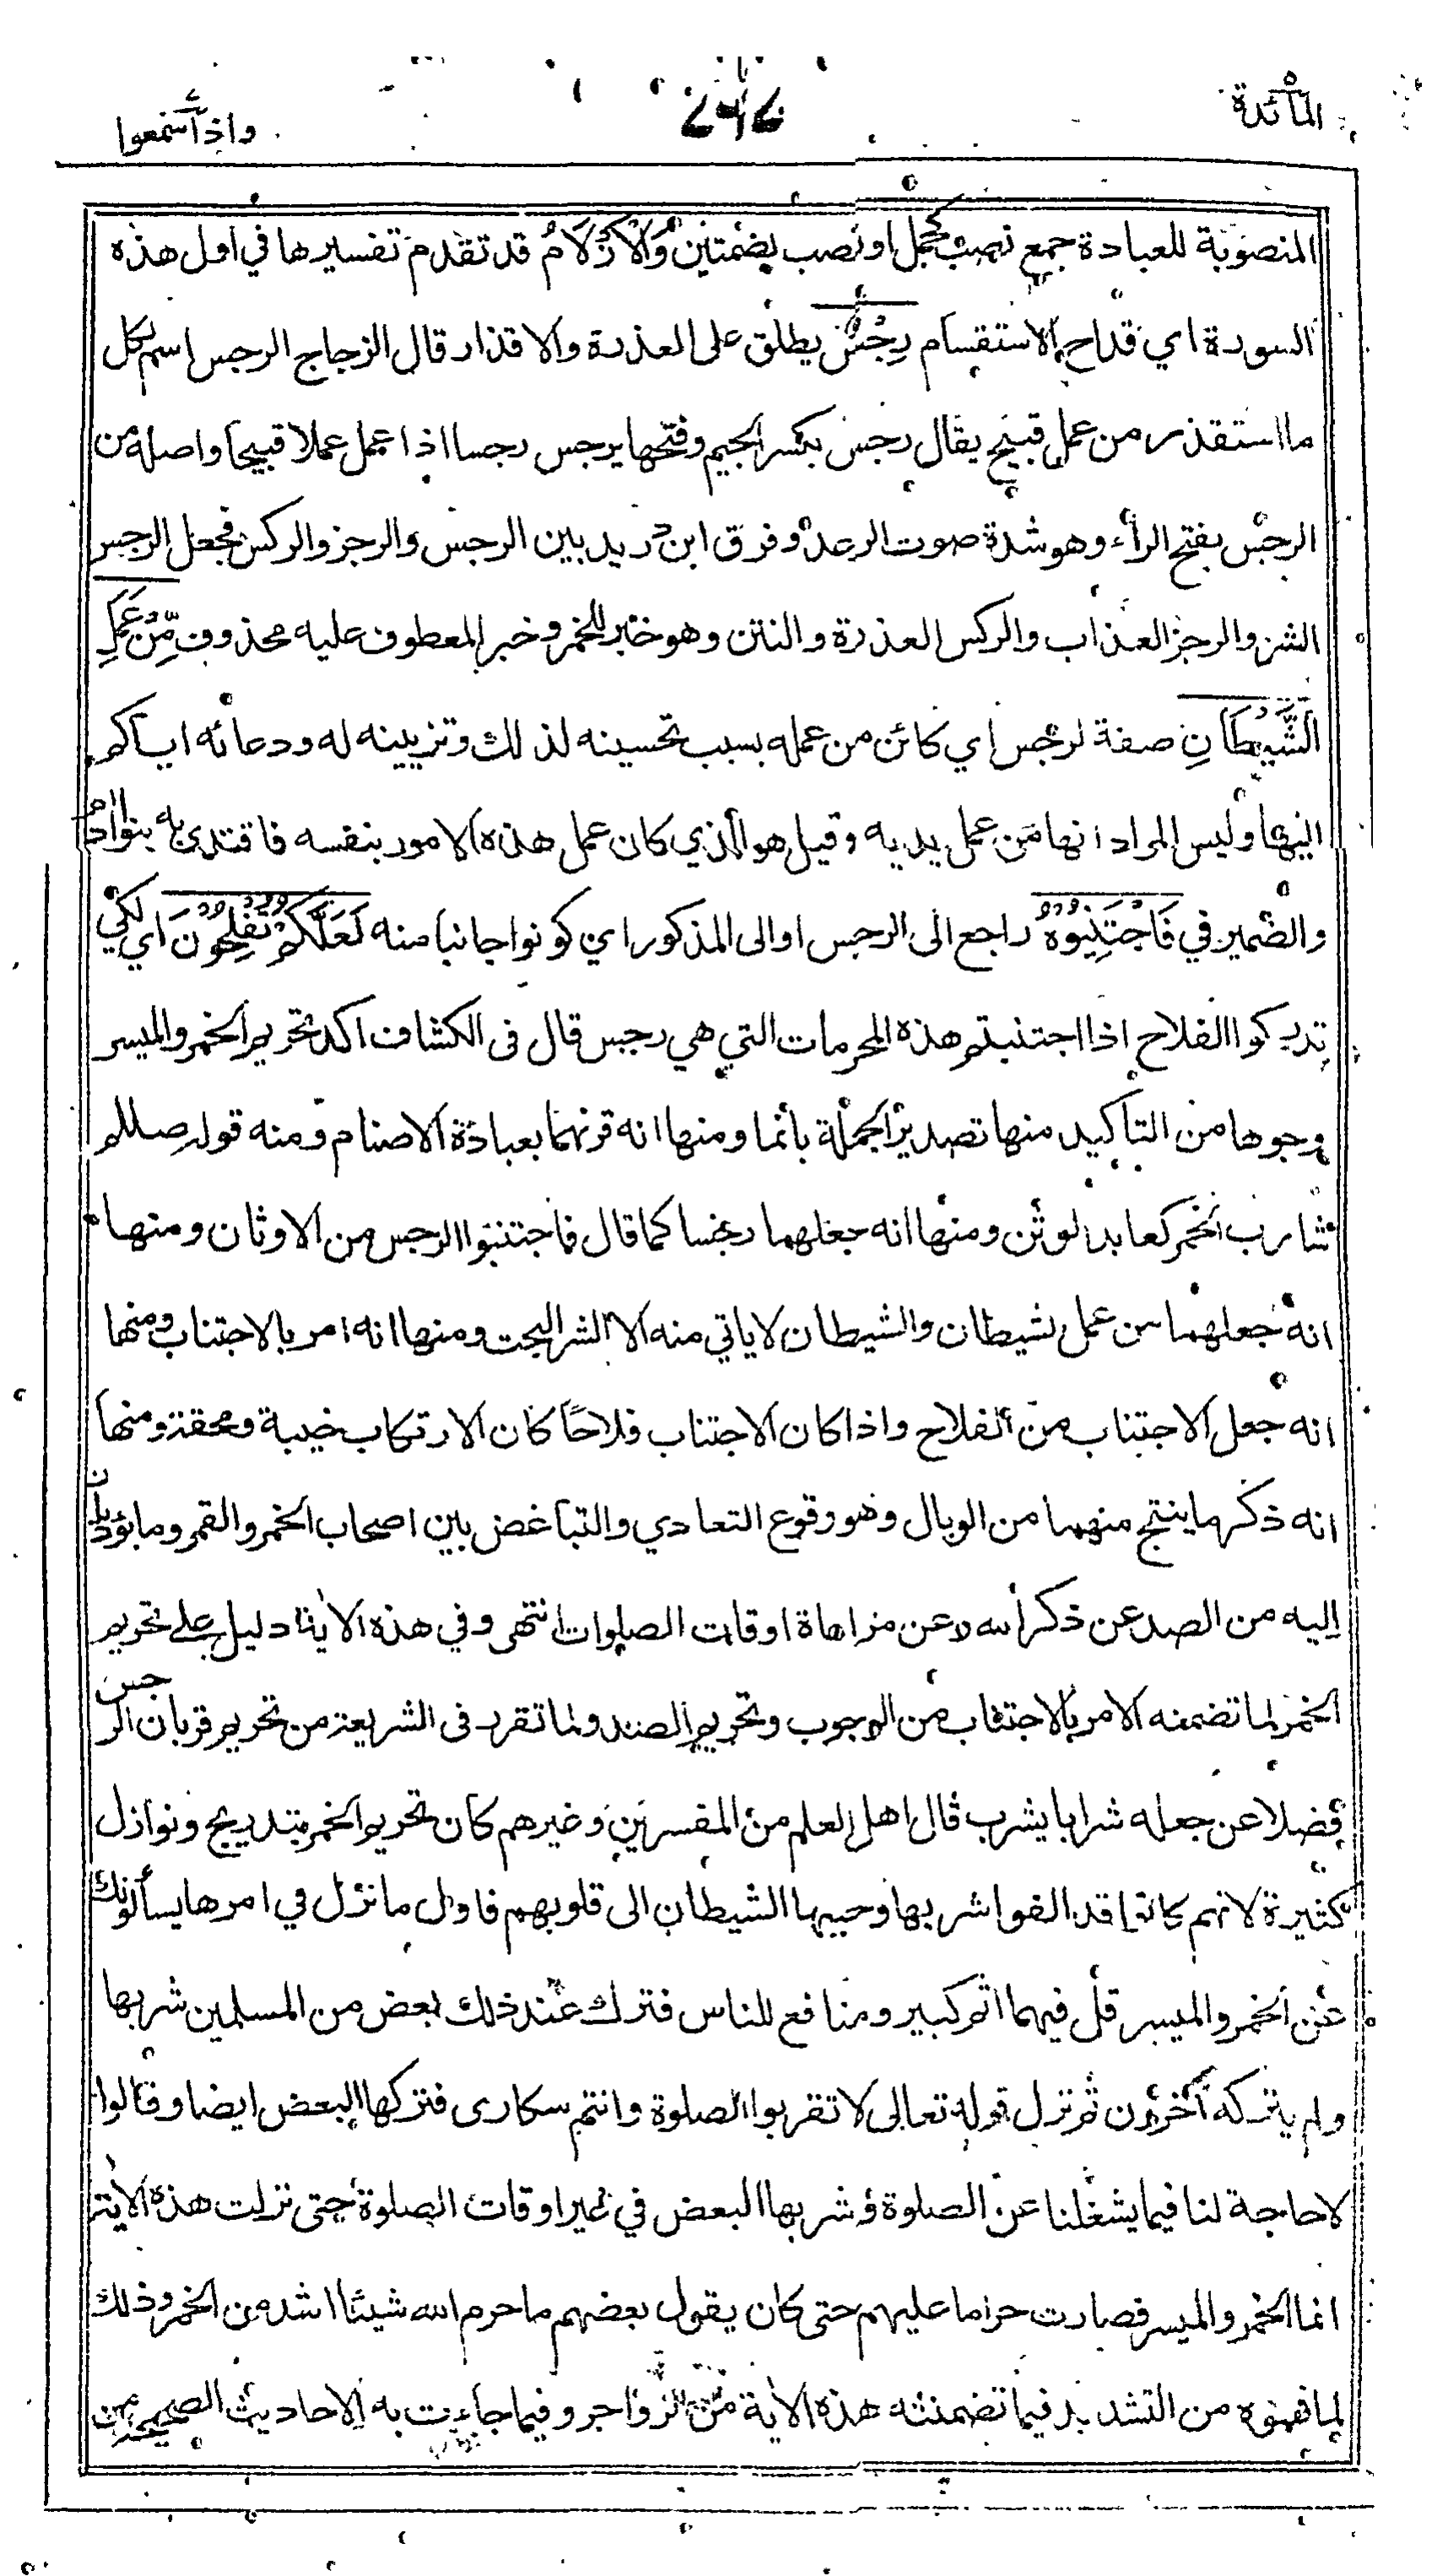 المائدة
واذا سمعوا
المنصوبة للعبادة جمع نصب كجمل او نصب بضمتين وَالْاَزْلَامُ قد تقدم تفسيرها في اول هذه
السورة اي قداح الاستقسام رِجْسٌ يطلق على العذرة والاقذار قال الزجاج الرجس اسم لكل
ما استقذر من عمل قبيح يقال رجس بكسر الجيم وفتحها يرجس رجسا اذا عمل عملا قبيحا واصله من
الرجس بفتح الراء وهو شدة صوت الرعد وفرق ابن دريد بين الرجس والرجز والركس فجعل الرجس
الشر والرجز العذاب والركس العذرة والنتن وهو خبر للخمر وخبر المعطوف عليه محذوف مِّنْ عَمَلِ
الشَّيْطَانِ صفة لرجس اي كائن من عمله بسبب تحسينه لذلك وتزيينه له ودعائه اياكم
اليها وليس المراد انها من عمل يديه وقيل هو الذي كان عمل هذه الامور بنفسه فاقتدى به بنو ادم
والضمير في فَاجْتَنِبُوهُ راجع الى الرجس او الى المذكور اي كونوا جانبا منه لَعَلَّكُمْ تُفْلِحُونَ اي لكي
تدركوا الفلاح اذا اجتنبتم هذه المحرمات التي هي رجس قال فى الكشاف اكد تحريم الخمر والميسر
وجوها من التأكيد منها تصدير الجملة بانما ومنها انه قرنهما بعبادة الاصنام ومنه قوله صللم
شارب الخمر كعابد الوثن ومنها انه جعلهما رجسا كما قال فاجتنبوا الرجس من الاوثان ومنها
انه جعلهما من عمل لشيطان والشيطان لا ياتي منه الا الشر البحت ومنها انه امر بالاجتناب ومنها
انه جعل الاجتناب من الفلاح واذا كان الاجتناب فلاحًا كان الارتكاب خيبة ومحقة ومنها
انه ذكر ما ينتج منهما من الوبال وهو وقوع التعادي والتباغض بين اصحاب الخمر والقمر وما يؤديان
اليه من الصد عن ذكر الله وعن مراعاة اوقات الصلوات انتهى وفي هذه الاية دليل على تحريم
الخمر لما تضمنه الامر بالاجتناب من الوجوب وتحريم الصد ولما تقرر فى الشريعة من تحريم قربان الرجس
فضلا عن جعله شرابا يشرب قال اهل العلم من المفسرين وغيرهم كان تحريم الخمر بتدريج ونوازل
كثيرة لانهم كانوا قد الفوا شربها وحببها الشيطان الى قلوبهم فاول ما نزل في امرها يسألونك
عن الخمر والميسر قل فيهما اثم كبير ومنافع للناس فترك عند ذلك بعض من المسلمين شربها
ولم يتركه آخرون ثم نزل قوله تعالى لا تقربوا الصلوة وانتم سكارى فتركها البعض ايضا وقالوا
لا حاجة لنا فيما يشغلنا عن الصلوة وشربها البعض في غير اوقات الصلوة حتى نزلت هذه الاية
انما الخمر والميسر فصارت حراما عليهم حتى كان يقول بعضهم ما حرم الله شيئا اشد من الخمر وذلك
لما فهموه من التشديد فيما تضمنته هذه الاية من الزواجر وفيما جاءت به الاحاديث الصحيحة من